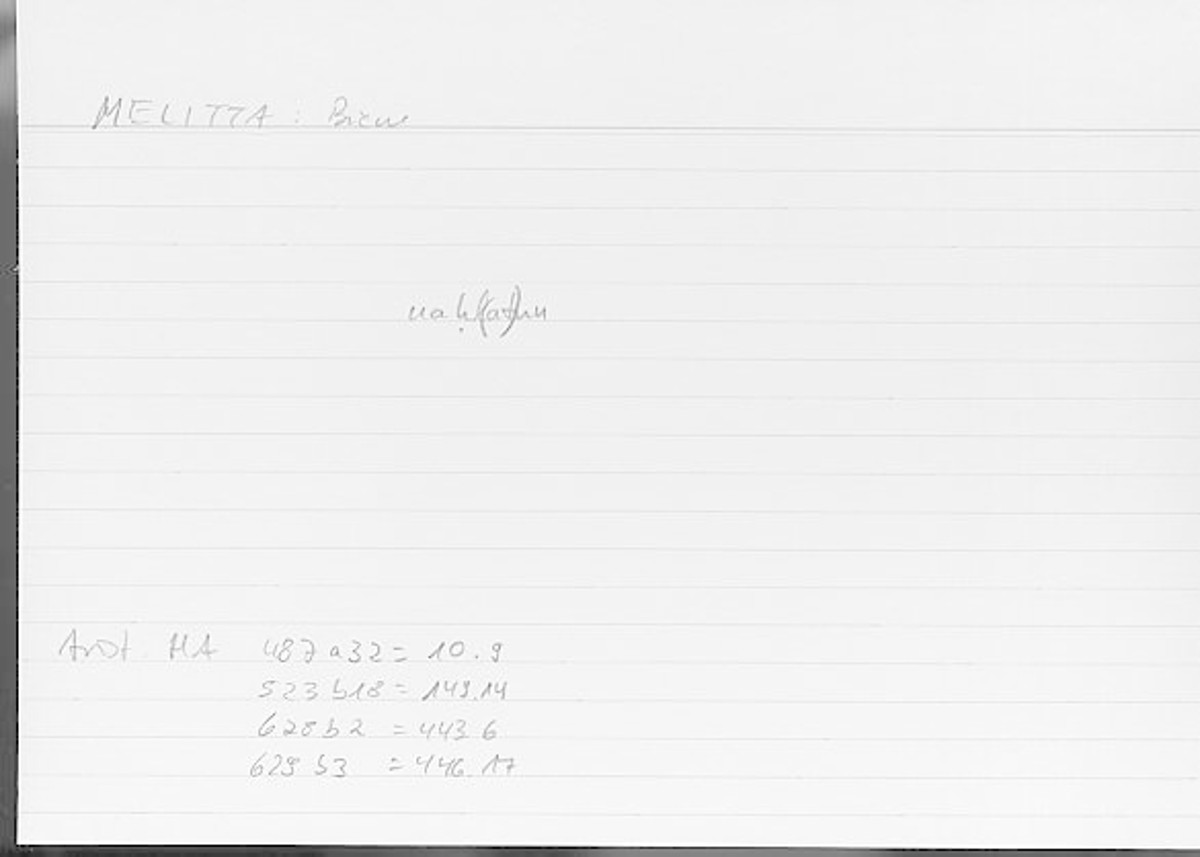 MELITTA : Biene
naḥl(at)un
Arist HA 487 a32 = 10.9
523 b18 = 149.14
628 b2 = 443.6
629 b3 = 446.17